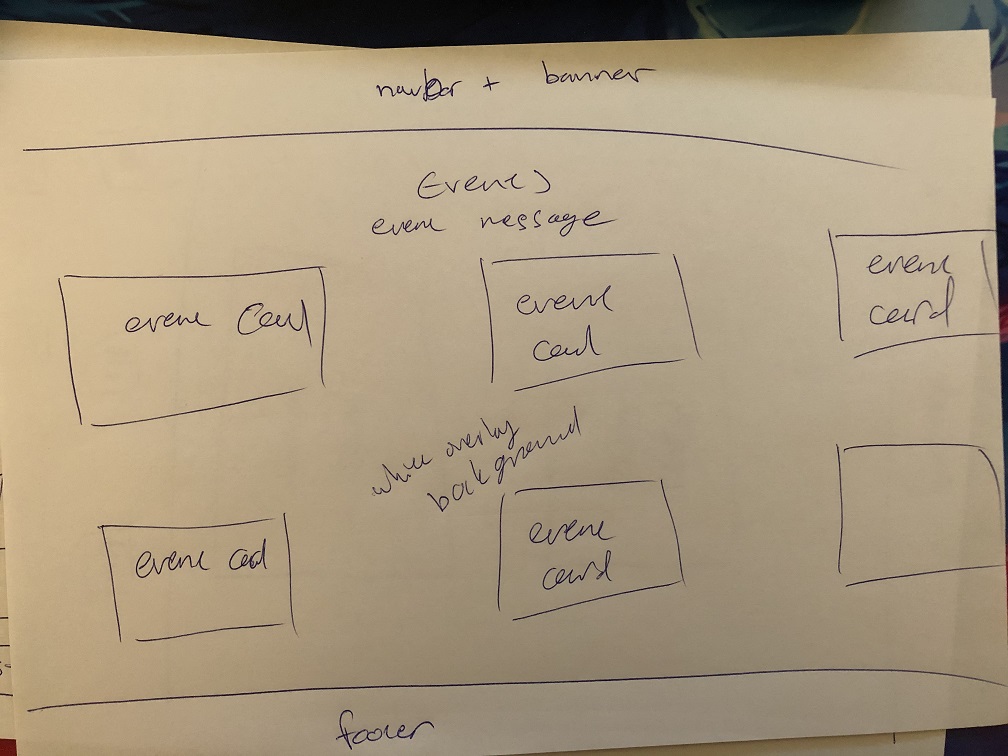 navbar + banner
Events
event message
event card
event
card
event
card
white overlay
background
event card
event
card
footer